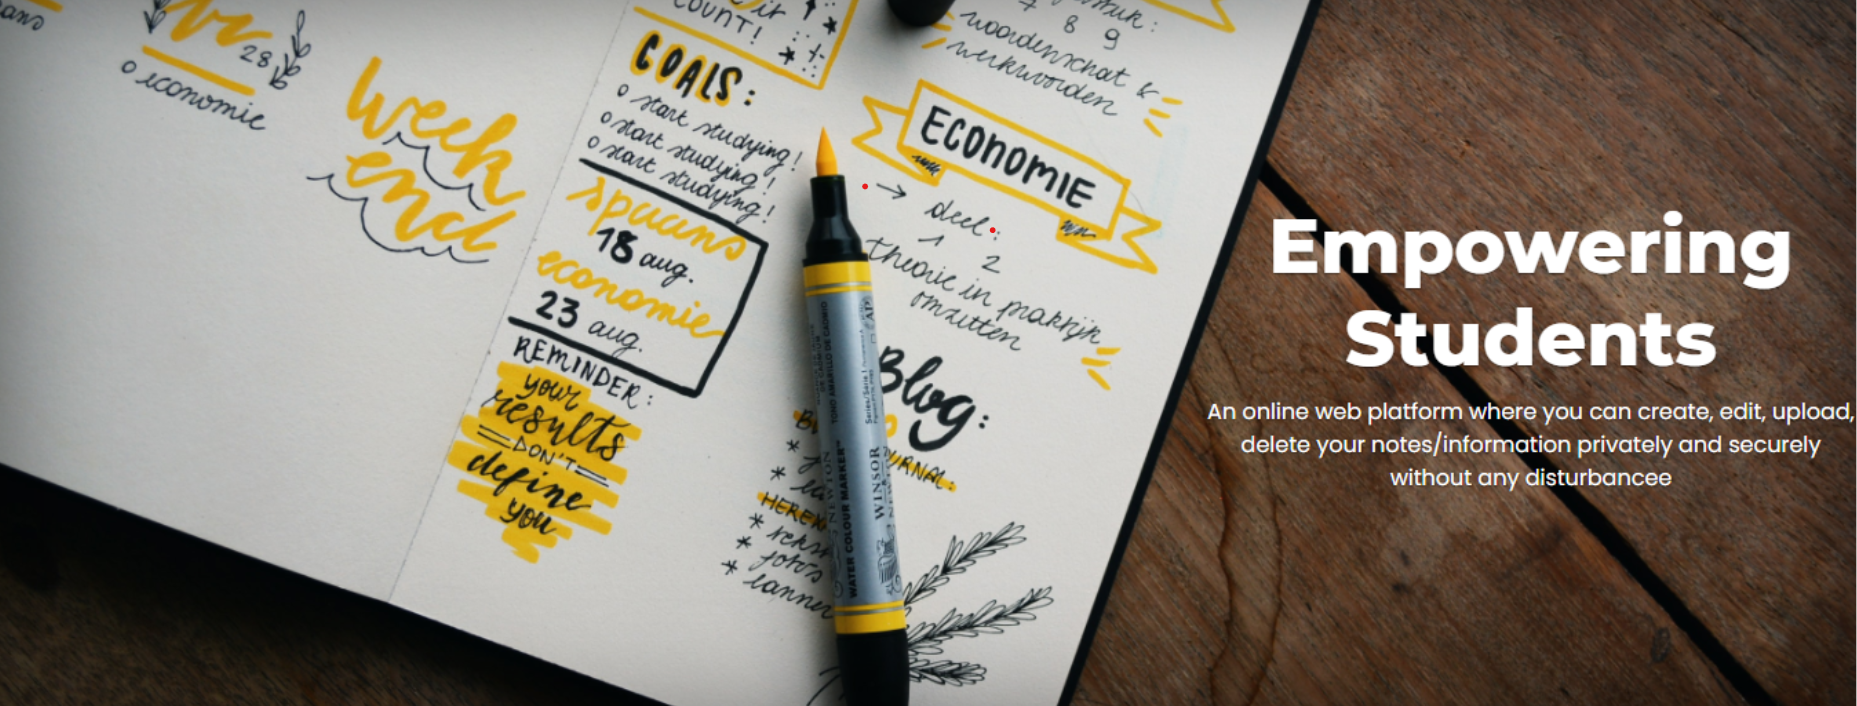 28
o economie
week
end
COUNT!
GOALS:
o start studying!
o start studying!
o start studying!
spaans
18 aug.
economie
23 aug.
REMINDER:
your
results
DON'T
define
you
7 8 9
woordenschat &
werkwoorden
ECONOMIE
→ deel:
1 2
theorie in praktijk
omzetten
Blog:
WATER COLOUR MARKER™
WINSOR
Empowering
Students
An online web platform where you can create, edit, upload,
delete your notes/information privately and securely
without any disturbancee